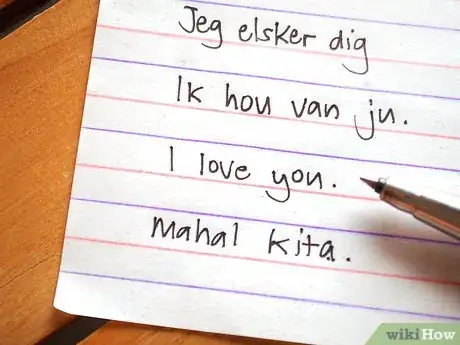 Jeg elsker dig
Ik hou van ju.
I love you.
Mahal kita.
wikiHow